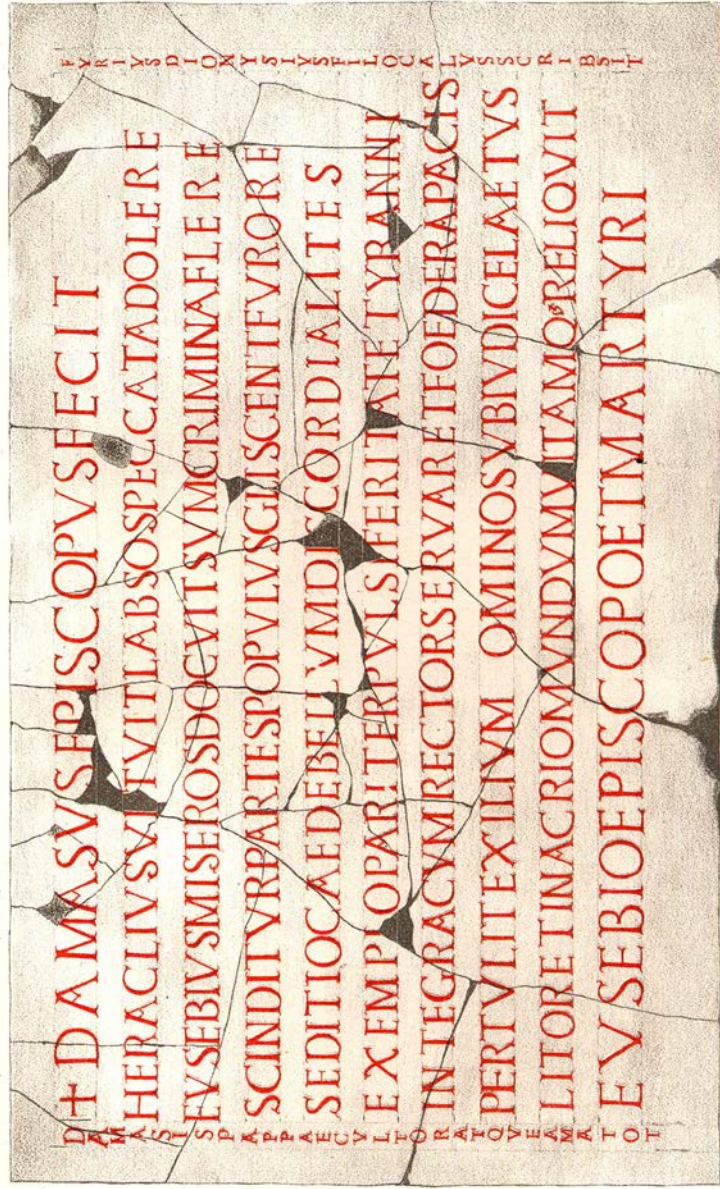 + DAMASVS EPISCOPVS FECIT
HERACLIVS VETVIT LABSOS PECCATA DOLERE
EVSEBIVS MISEROS DOCVIT SVM CRIMINA FLERE
SCINDITVR PARTES POPVLVS GLISCENTE FVRORE
SEDITIO CAEDE BELLVM DISCORDIA LITES
EXEMPLO PARITER PVLSI FERITATE TYRANNI
INTEGRA CVM RECTOR SERVARET FOEDERA PACIS
PERTVLIT EXILIVM OMINO SVB IVDICE LAETVS
LITORE TINACRIO MVNDVM VITAMQ RELIQVIT
EVSEBIO EPISCOPO ET MARTYRI
DAMASIS PAPPAE CVLTOR ATQVE AMATOT
FVRIVS DIONYSIVS FILOCALVS SCRIBSIT